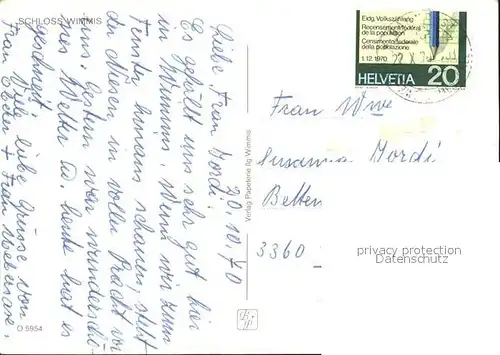 SCHLOSS WIMMIS
20.10.70
Liebe Frau Jordi!
Es gefällt uns sehr gut hier
in Wimmis. Wenn wir zum
Fenster hinaus schauen, steht
d. Niesen, in voller Pracht vor
uns. Gestern war wunderschö-
nes Wetter u. heute hat es
geschneit. Viele liebe Grüsse von
Frau
+ Frau
O 5954
Verlag Papeterie Ilg Wimmis
Eidg. Volkszählung
Recensement fédéral
de la population
Censimento federale
della popolazione
1.12.1970
HELVETIA 20
Frau Wwe
Susanna Jordi
Betten
3360
privacy protection
Datenschutz